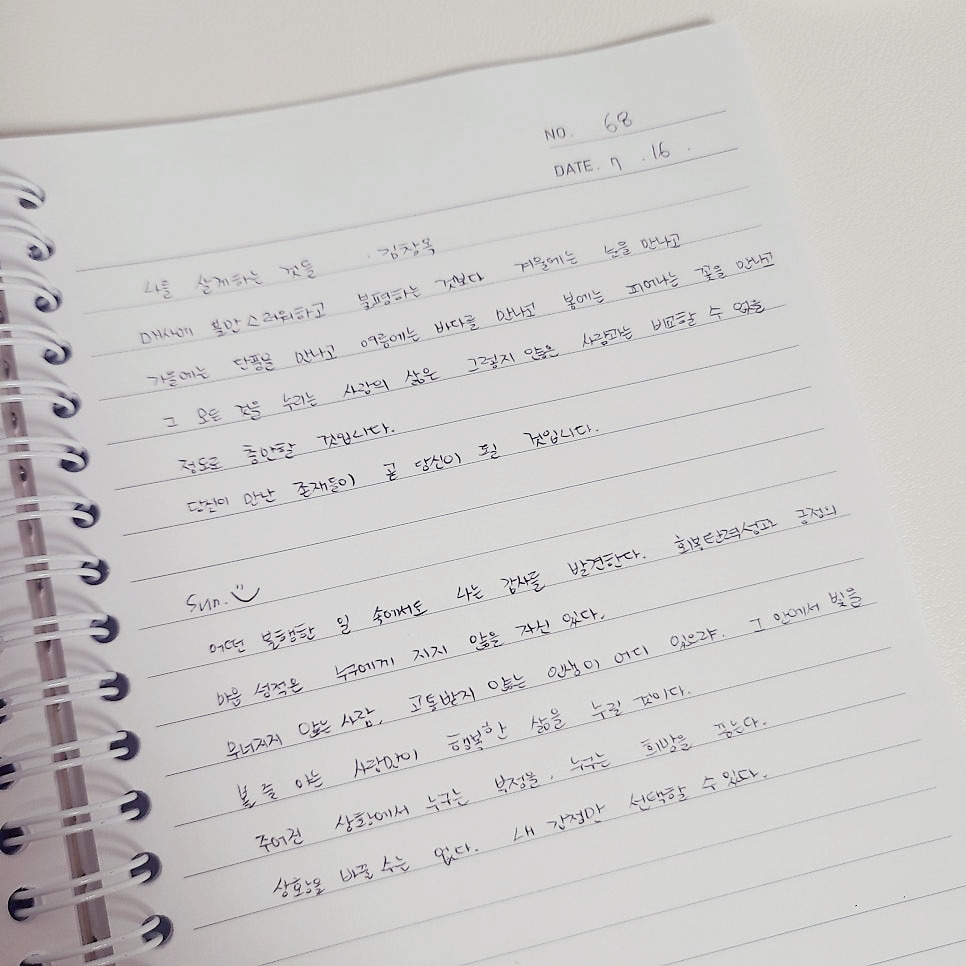 NO. 68
DATE. 7 . 16 .
나를 살게하는 것들 . 김창옥
매사에 불만스러워하고 불평하는 것보다 겨울에는 눈을 만나고
가을에는 단풍을 만나고 여름에는 바다를 만나고 봄에는 피어나는 꽃을 만나고
그 모든 것을 누리는 사람의 삶은 그렇지 않은 사람과는 비교할 수 없을
정도로 충만할 것입니다.
당신이 만난 존재들이 곧 당신이 될 것입니다.
Sun.
어떤 불행한 일 속에서도 나는 감사를 발견한다. 회복탄력성과 긍정의
마음 성적은 누구에게 지지 않을 자신 있다.
무너지지 않는 사람, 고통받지 않는 인생이 어디 있으랴. 그 안에서 빛을
볼 줄 아는 사람만이 행복한 삶을 누릴 것이다.
주어진 상황에서 누구는 부정을, 누구는 희망을 품는다.
상황을 바꿀 수는 없다. 내 감정만 선택할 수 있다.